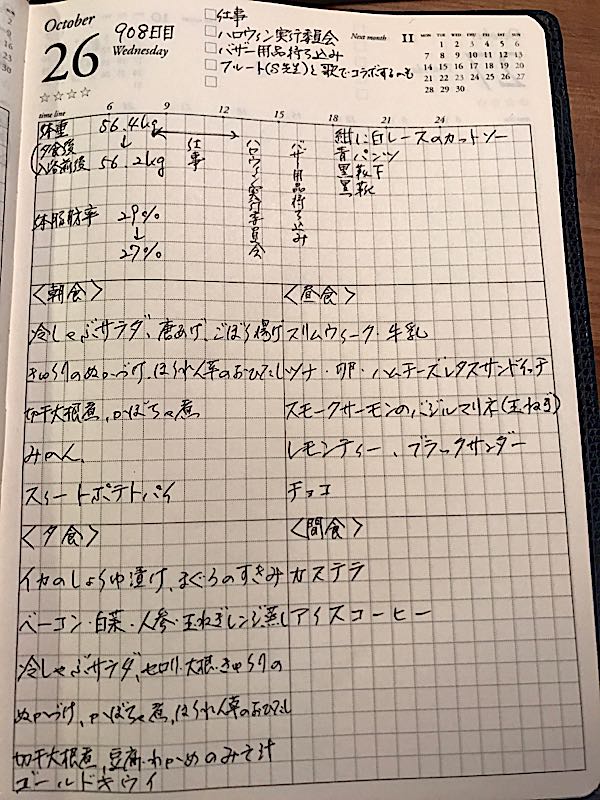 October
26
Wednesday
908日目
□仕事
□ハロウィン実行委員会
□バザー用品持ち込み
□フルート(S先生)と歌でコラボするのも
Next month 11
MON TUE WED THU FRI SAT SUN
1 2 3 4 5 6
7 8 9 10 11 12 13
14 15 16 17 18 19 20
21 22 23 24 25 26 27
28 29 30
☆☆☆☆
time line 6 9 12 15 18 21 24
体重 56.4kg
夕食後 ↓
入浴前後 56.2kg
体脂肪率 29%
↓
27%
仕事
ハロウィン実行委員会
バザー用品持ち込み
紺に白レースのカットソー
青パンツ
黒靴下
黒靴
<朝食>
冷しゃぶサラダ、唐あげ、ごぼう揚げ
きゅうりのぬかづけ、ほうれん草のおひたし
切干大根煮、かぼちゃ煮
みかん、
スイートポテトパイ
<昼食>
スリムウィーク・牛乳
ツナ・卵・ハムチーズレタスサンドイッチ
スモークサーモンのバジルマリネ(玉ねぎ)
レモンティー、ブラックサンダー
チョコ
<夕食>
イカのしょうゆ漬け、まぐろのすきみ
ベーコン・白菜・人参・玉ねぎレンジ蒸し
冷しゃぶサラダ、セロリ・大根・きゅうりの
ぬかづけ、かぼちゃ煮、ほうれん草のおひたし
切干大根煮、豆腐・わかめのみそ汁
ゴールドキウイ
<間食>
カステラ
アイスコーヒー